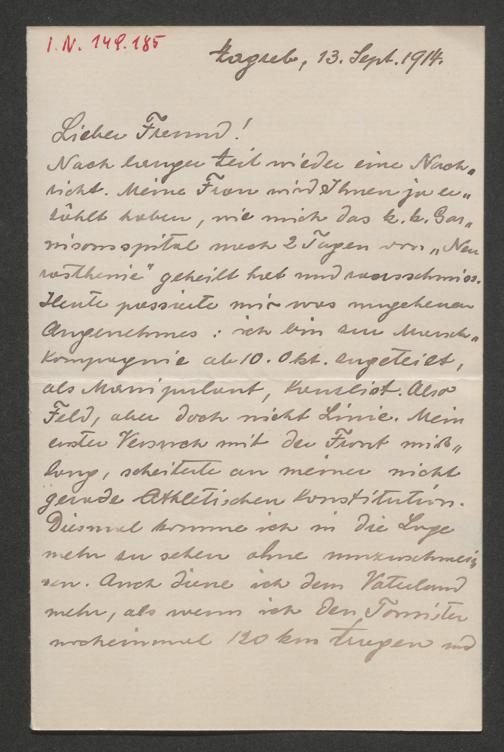 I.N. 149.185
Zagreb, 13. Sept. 1914.
Lieber Freund!
Nach langer Zeit wieder eine Nach„
richt. Meine Frau wird Ihnen ja er„
zählt haben, wie mich das k. k. Gar„
nisonsspital nach 2 Tagen von „Neu
rasthenie" geheilt hat und rausschmiss.
Heute passierte mir was ungeheuer
Angenehmes: ich bin zur Marsch„
kompagnie ab 10. Okt. zugeteilt,
als Manipulant, Kanzlist. Also
Feld, aber doch nicht Linie. Mein
erster Versuch mit der Front miß„
lang, scheiterte an meiner nicht
gerade Athletischen Konstitution.
Diesmal komme ich in die Lage
mehr zu sehen ohne umzuschmeis
sen. Auch diene ich dem Vaterland
mehr, als wenn ich den Tornister
nocheinmal 120 km tragen und